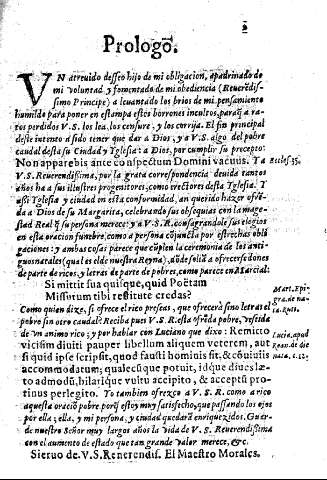 2
Prologo.
VN atreuido desseo hijo de mi obligacion, apadrinado de
mi voluntad y fomentada de mi obediencia (Reuerēdis-
simo Principe) a leuantado los brios de mi pensamiento
humilde para poner en estampa estos borrones incultos, paraq̃ a ra-
tos perdidos V. S. los lea, los censure, y los corrija. El fin principal
deste intento a sido tener que dar a Dios, y a V. S. algo del pobre
caudal desta su Ciudad y Yglesia: a Dios, por cumplir su precepto:
Non apparebis ante conspectum Domini vacuus. Ya
Eccles. 35.
V. S. Reuerendissima, por la grata correspondencia deuida tantos
años ha a sus illustres progenitores, como erectores desta Yglesia. Y
assi Yglesia y ciudad en esta conformidad, an querido hazer ofrē-
da a Dios de su Margarita, celebrando sus obsequias con la mage-
stad Real q̃ su persona merece: y a V. S. R. consagrandole sus elogios
en esta oracion funebre, como a persona cōjuncta por estrechas obli-
gaciones: y ambas cosas parece que cūplen la ceremonia de los anti-
guos natales (qual es el de nuestra Reyna), adōde solia ofrecerse dones
de parte de ricos, y letras de parte de pobres, como parece en Marcial:
Si mittit sua quisque, quid Poëtam
Missurum tibi restitute credas?
Mart. Epi-
Como quien dize, si ofrece el rico preseas, que ofrecerà sino letras el
pobre sin otro caudal? Reciba pues V. S. R. esta ofrēda pobre, vestida
de vn animo rico; y por hablar con Luciano que dixo: Remitto
vicissim diuiti pauper libellum aliquem veterem, aut
si quid ipse scripsit, quod fausti hominis sit, & cōuiuijs
accommodatum; qualecũque potuit, idque diues læ-
to admodũ, hilarique vultu accipito, & acceptũ pro-
tinus perlegito. Yo tambien ofrezco a V. S. R. como a rico
aquesta oraciō pobre porq̃ estoy muy satisfecho, que passando los ojos
por ella ella, y mi persona, y ciudad quedarà enriquezidos. Guar-
de nuestro Señor muy largos años la vida de V. S. Reuerendissima
con el aumento de estado que tan grande valor merece, &c.
Sieruo de V. S. Reuerendis. El Maestro Morales.